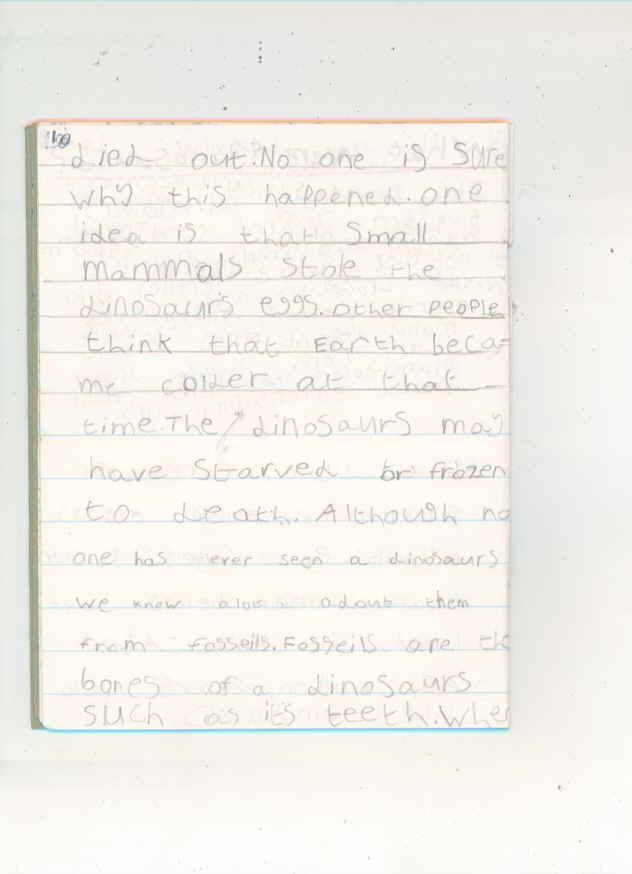 10
died out.No one is sure
why this happened.one
idea is that small
mammals stole the
dinosaur's eggs.other people
think that Earth beca-
me colder at that
time.The dinosaurs may
have starved or frozen
to death. Although no
one has ever seen a dinosaurs
we know alot adout them
from fosseils.Fosseils are the
bones of a dinosaurs
such as it's teeth.When